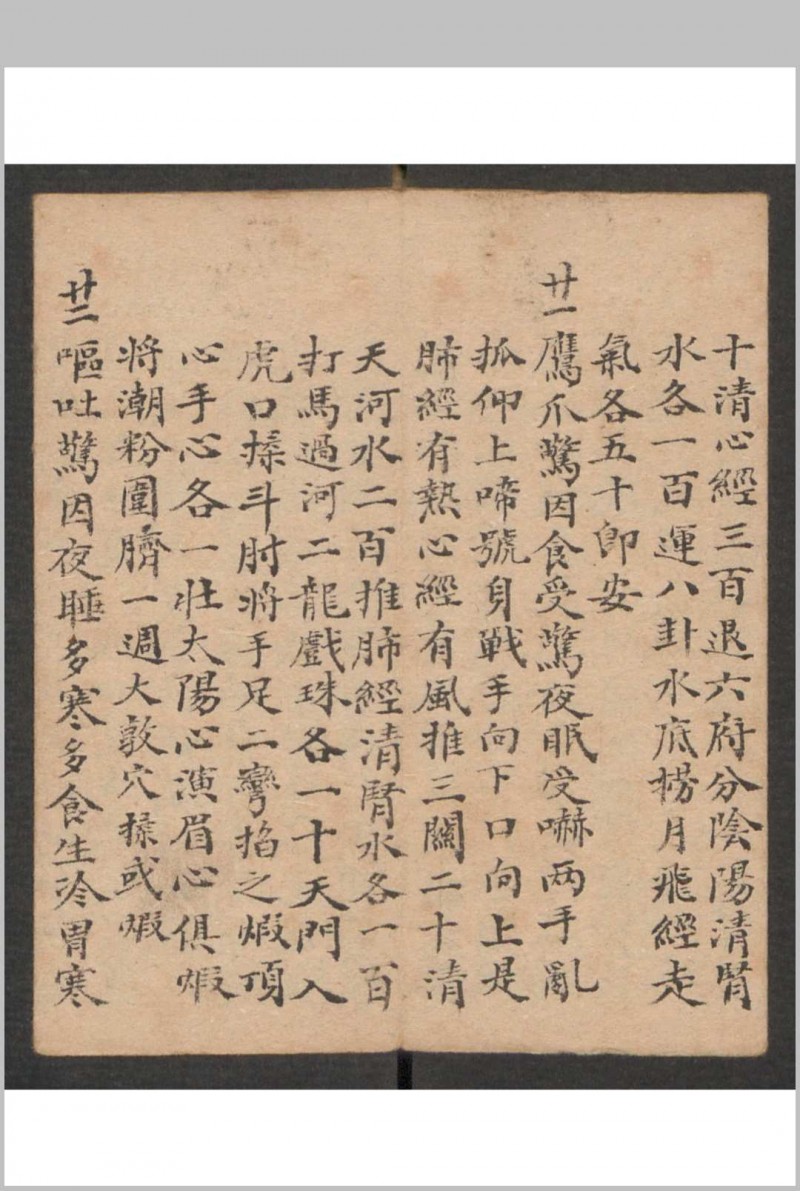 十清心經三百退六府分陰陽清腎
水各一百運八卦水底撈月飛經走
氣各五十卽安
廿一鷹爪驚因食受驚夜眠受嚇两手亂
抓仰上啼號身戰手向下口向上是
肺經有熱心經有風推三關二十清
天河水二百推肺經清腎水各一百
打馬過河二龍戲珠各一十天門入
虎口揉斗肘將手足二彎掐之煅頂
心手心各一壮太陽心演眉心俱煅
將潮粉圍臍一週大敦穴揉或煅
廿二嘔吐驚因夜睡多寒多食生冷胃寒